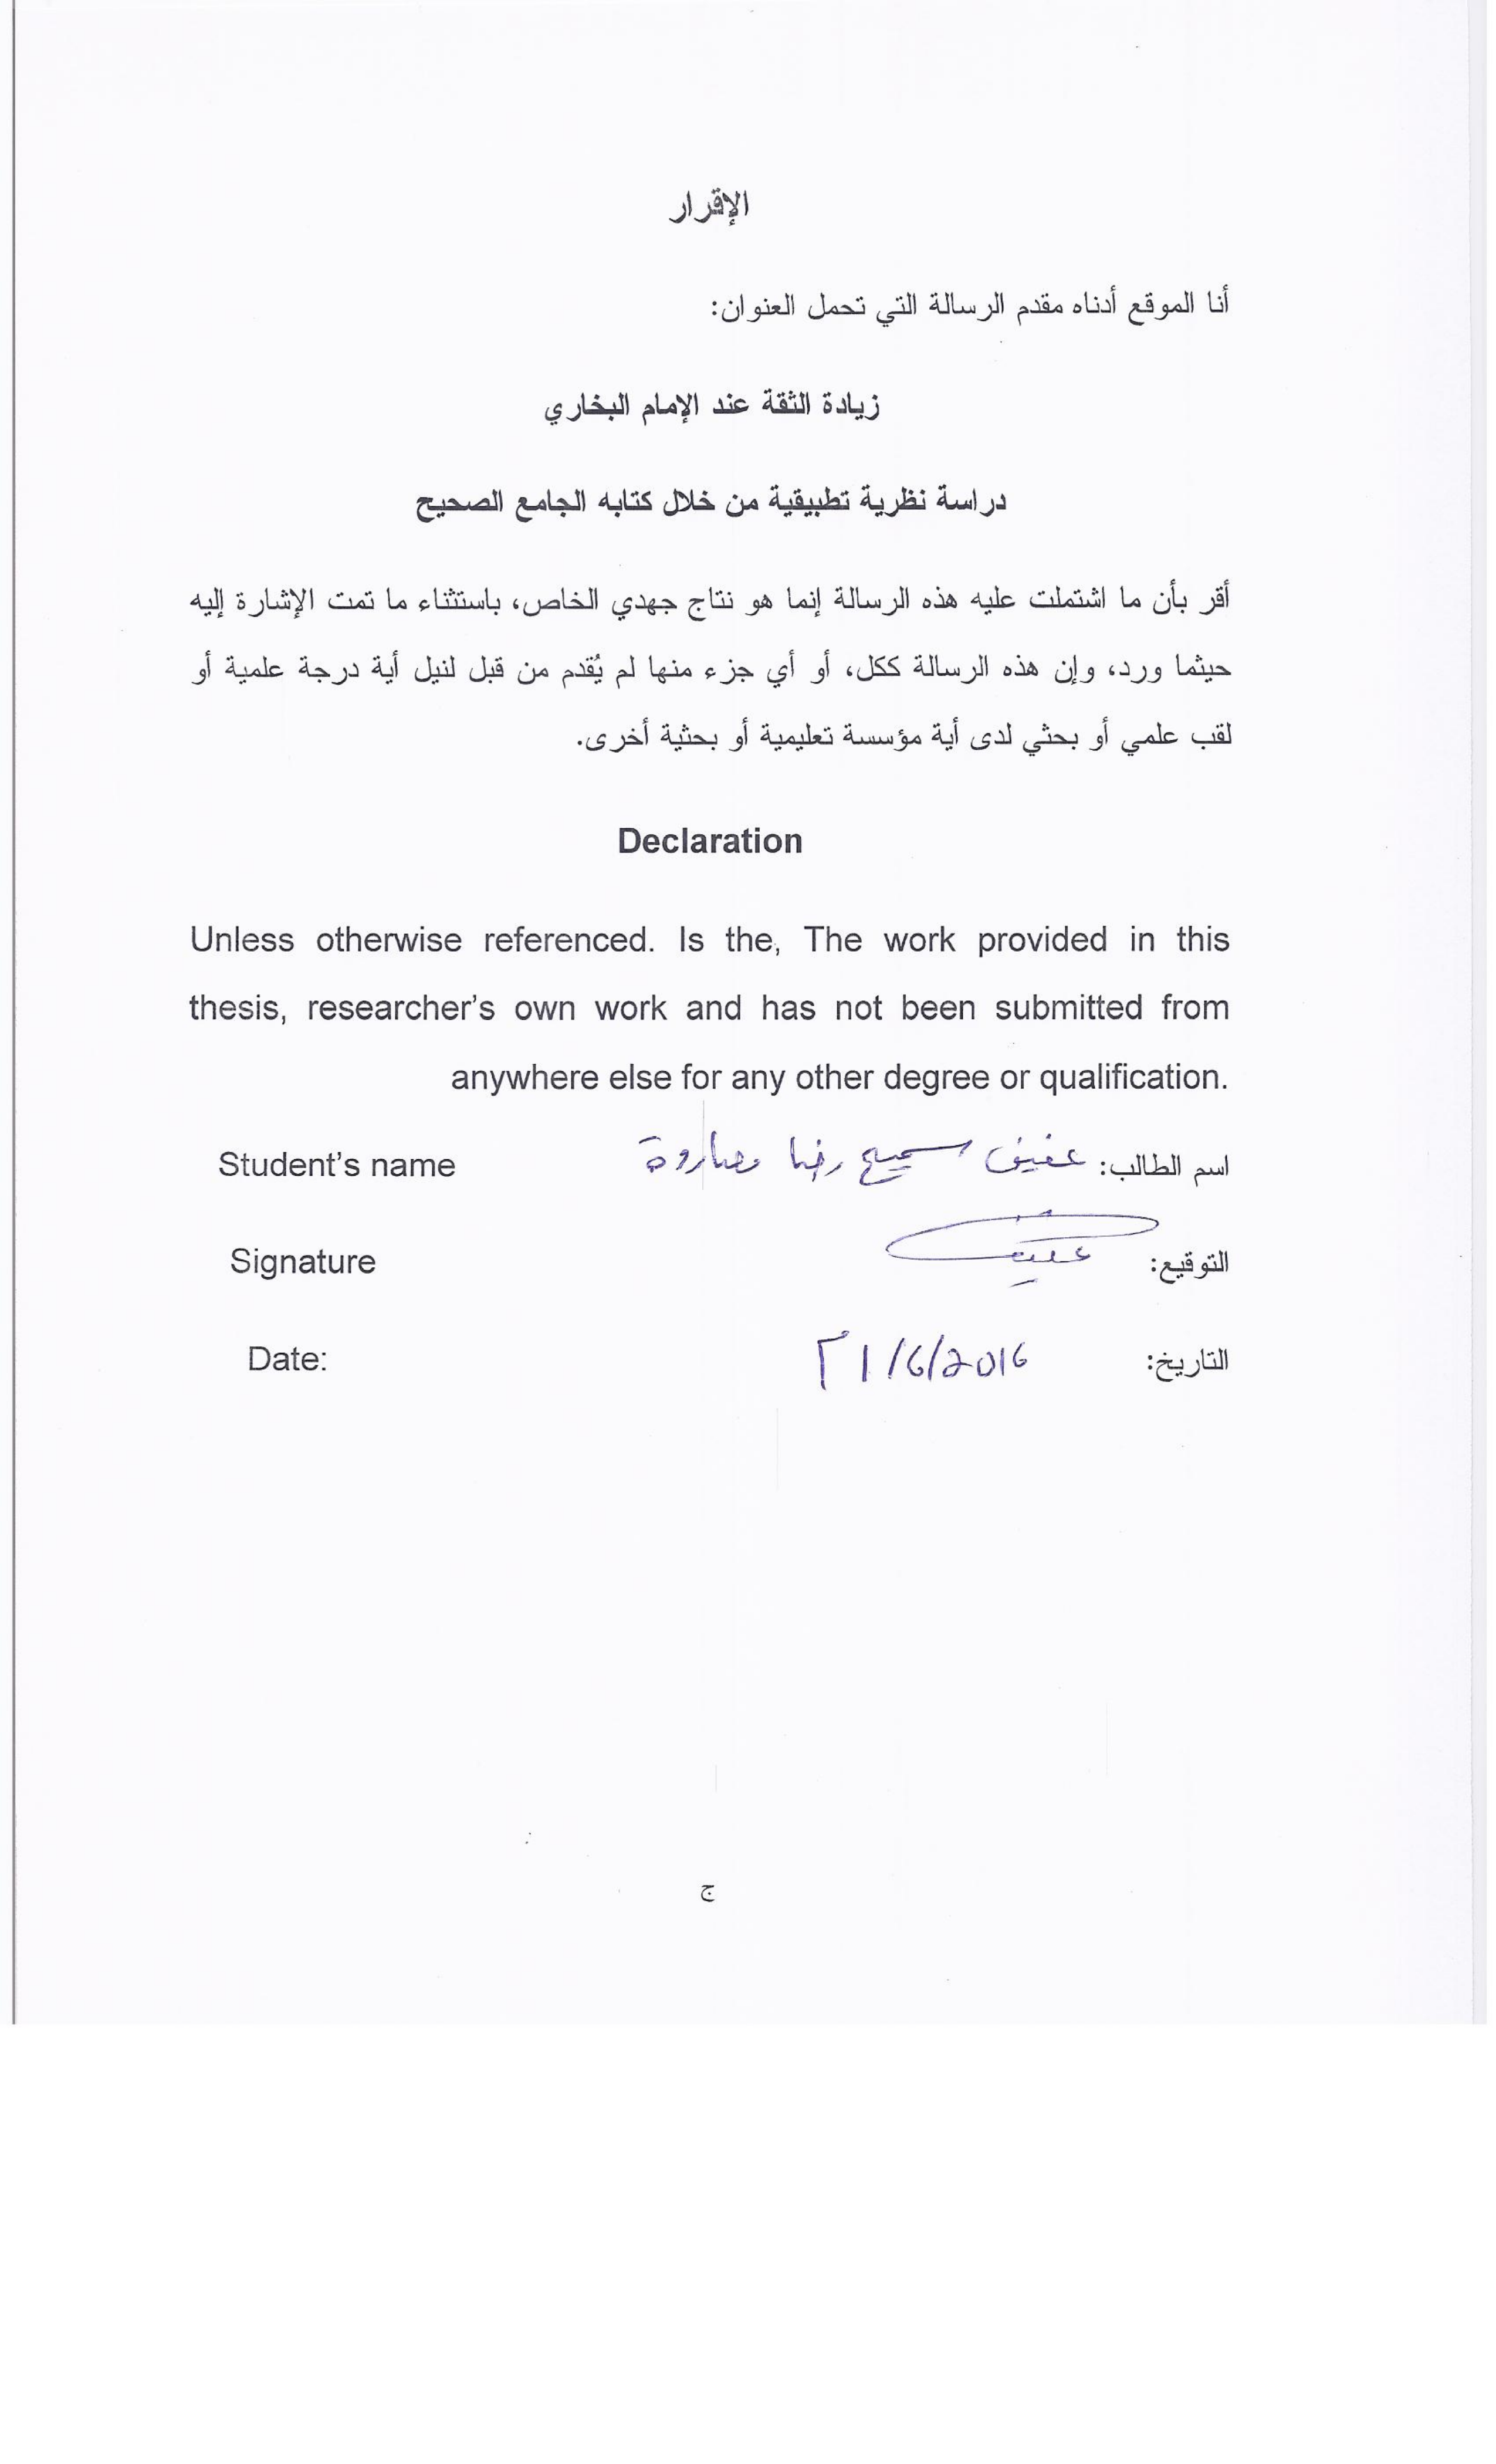 الإقرار
أنا الموقع أدناه مقدم الرسالة التي تحمل العنوان:
زيادة الثقة عند الإمام البخاري
دراسة نظرية تطبيقية من خلال كتابه الجامع الصحيح
أقر بأن ما اشتملت عليه هذه الرسالة إنما هو نتاج جهدي الخاص، باستثناء ما تمت الإشارة إليه
حيثما ورد، وإن هذه الرسالة ككل، أو أي جزء منها لم يُقدم من قبل لنيل أية درجة علمية أو
لقب علمي أو بحثي لدى أية مؤسسة تعليمية أو بحثية أخرى.
Declaration
Unless otherwise referenced. Is the, The work provided in this
thesis, researcher's own work and has not been submitted from
anywhere else for any other degree or qualification.
Student's name اسم الطالب: عفيف سميح رضا مصاروة
Signature التوقيع: عفيف
Date: التاريخ: ٢١/6/2016
ج